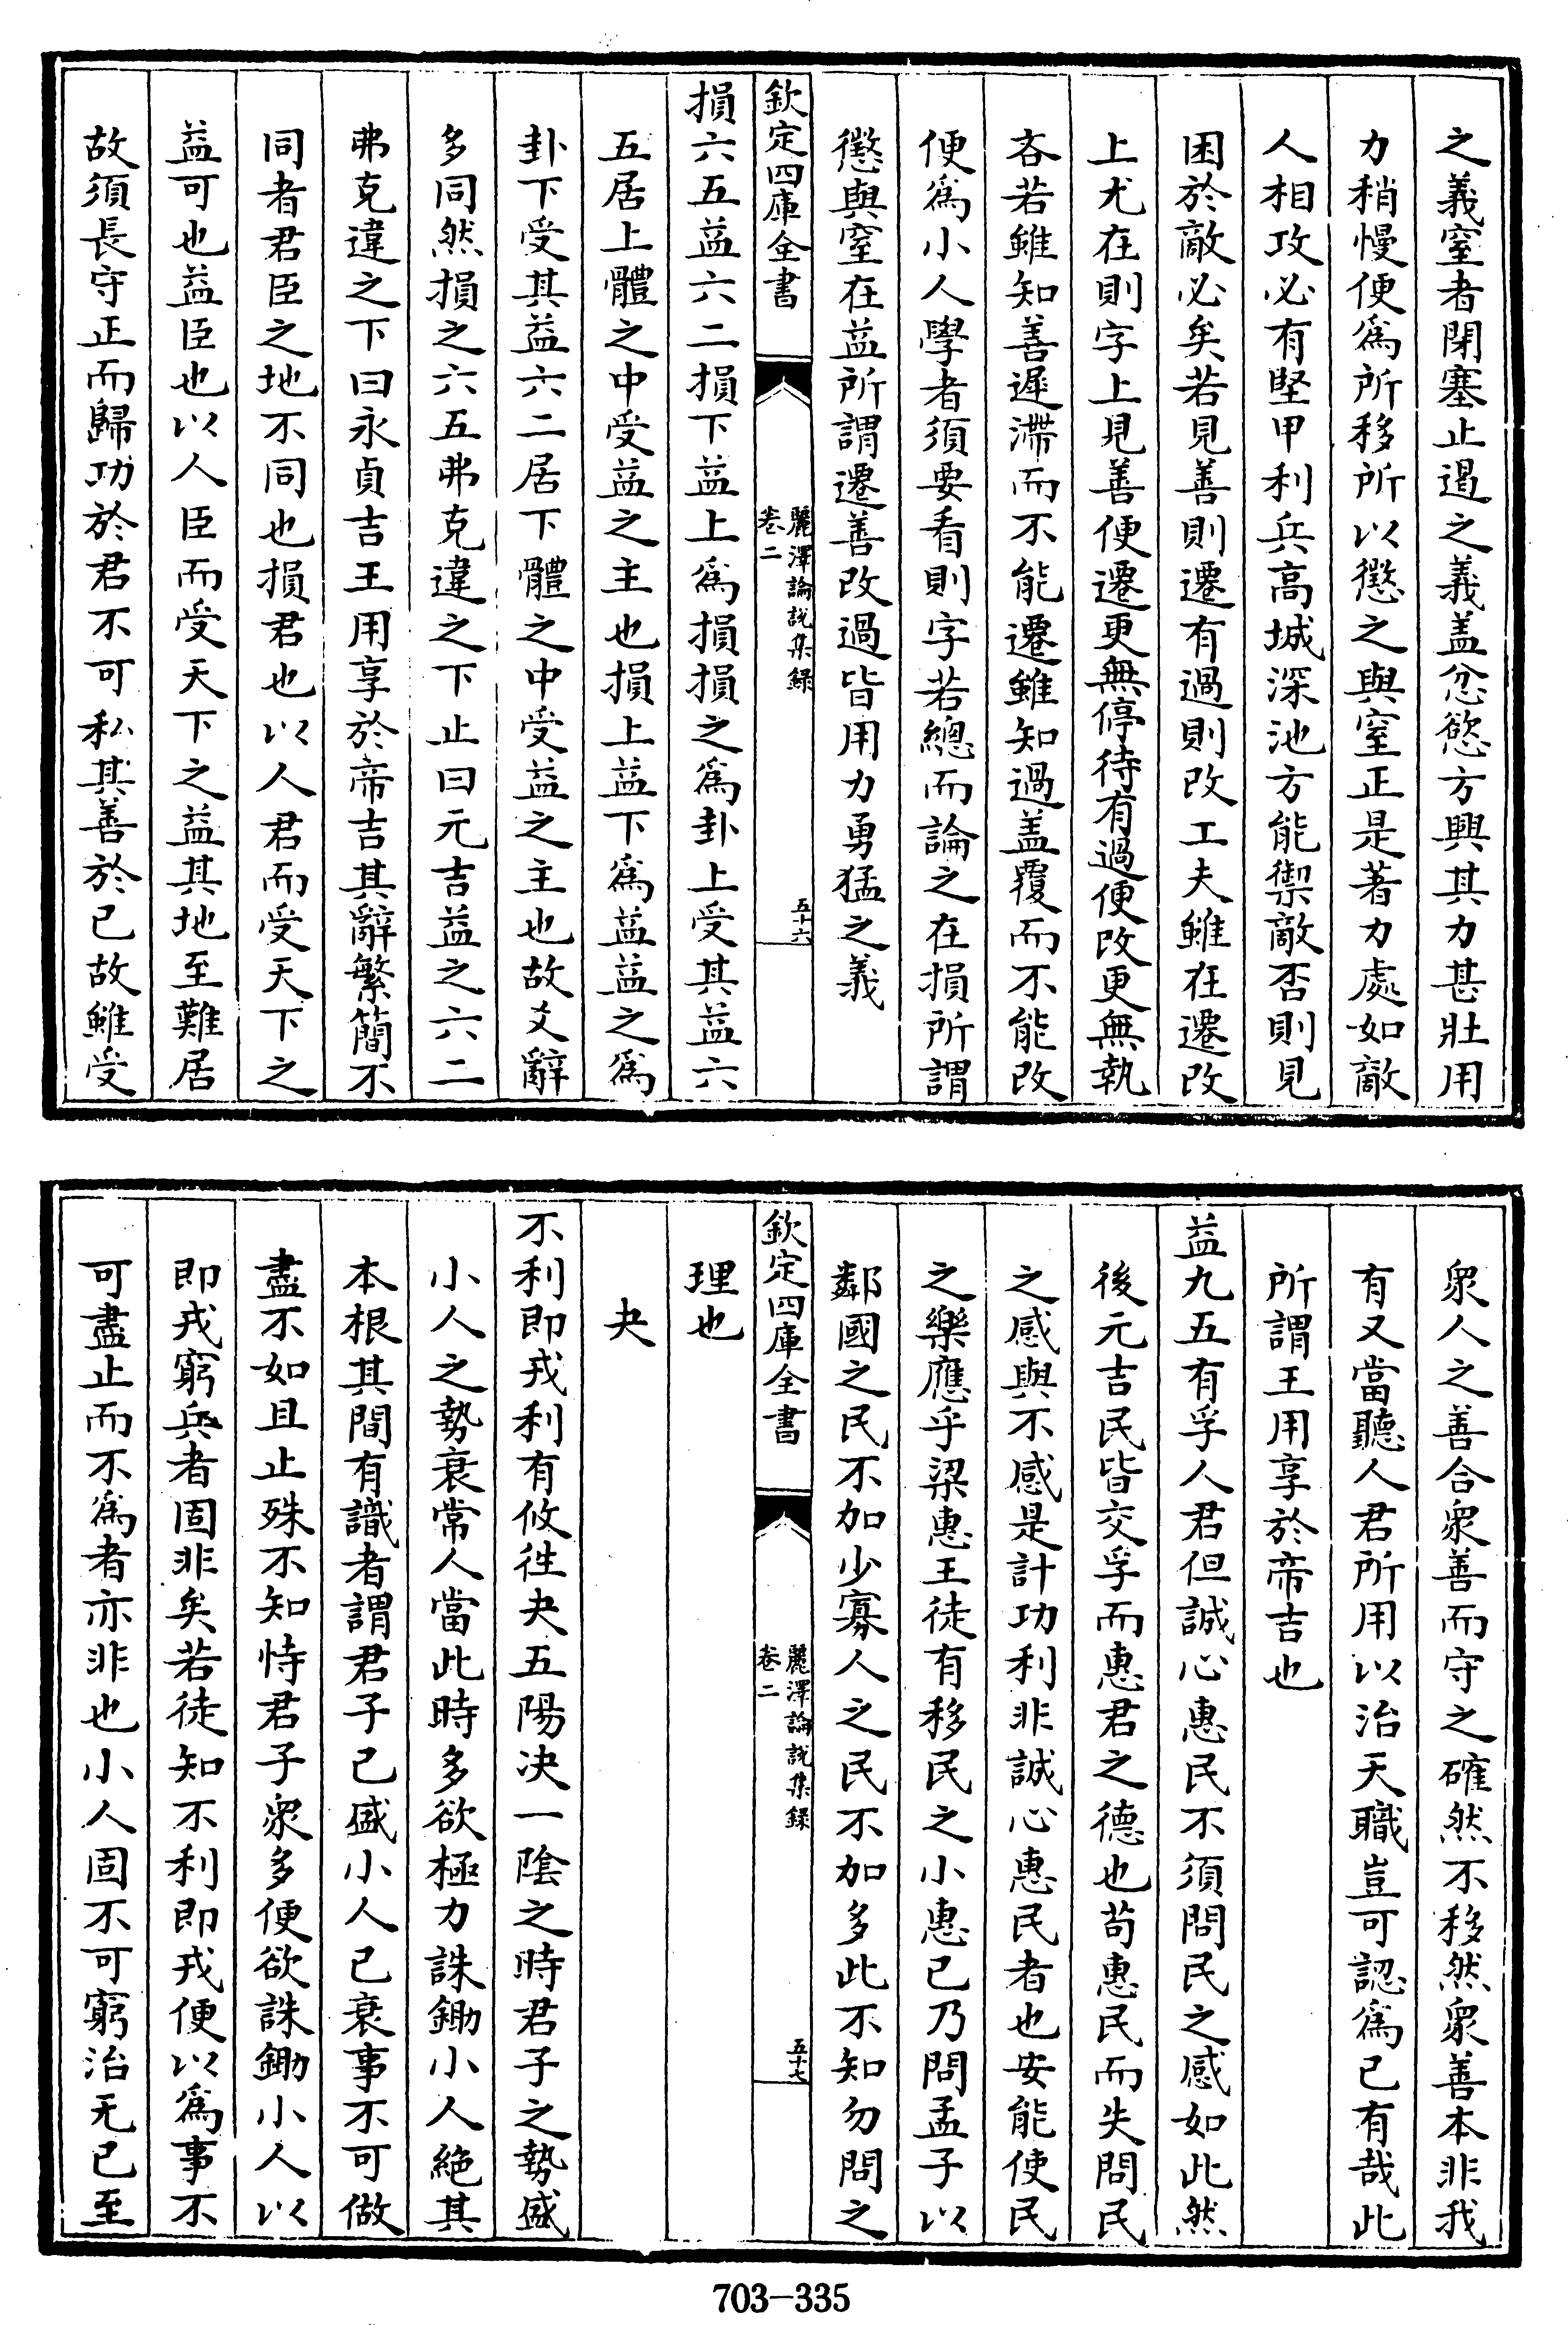 之義窒者閉塞止遏之義盖忿慾方興其力甚壯用
力稍慢便爲所移所以懲之與窒正是著力處如敵
人相攻必有堅甲利兵高城深池方能禦敵否則見
困於敵必矣若見善則遷有過則改工夫雖在遷改
上尤在則字上見善便遷更無停待有過便改更無執
吝若雖知善遲滯而不能遷雖知過盖覆而不能改
便爲小人學者須要看則字若總而論之在損所謂
懲與窒在益所謂遷善改過皆用力勇猛之義
欽定四庫全書
麗澤論說集録
卷二
五十六
損六五益六二損下益上爲損損之爲卦上受其益六
五居上體之中受益之主也損上益下爲益益之爲
卦下受其益六二居下體之中受益之主也故爻辭
多同然損之六五弗克違之下止曰元吉益之六二
弗克違之下曰永貞吉王用享於帝吉其辭繁簡不
同者君臣之地不同也損君也以人君而受天下之
益可也益臣也以人臣而受天下之益其地至難居
故須長守正而歸功於君不可私其善於已故雖受
衆人之善合衆善而守之確然不移然衆善本非我
有又當聽人君所用以治天職豈可認爲已有哉此
所謂王用享於帝吉也
益九五有孚人君但誠心惠民不須問民之感如此然
後元吉民皆交孚而惠君之德也苟惠民而失問民
之感與不感是計功利非誠心惠民者也安能使民
之樂應乎梁惠王徒有移民之小惠已乃問孟子以
鄰國之民不加少寡人之民不加多此不知勿問之
欽定四庫全書
麗澤論說集録
卷二
五十七
理也
夬
不利即戎利有攸徃夬五陽决一陰之時君子之勢盛
小人之勢衰常人當此時多欲極力誅鋤小人絶其
本根其間有識者謂君子已盛小人已衰事不可做
盡不如且止殊不知恃君子衆多便欲誅鋤小人以
即戎窮兵者固非矣若徒知不利即戎便以爲事不
可盡止而不爲者亦非也小人固不可窮治无已至
703-335